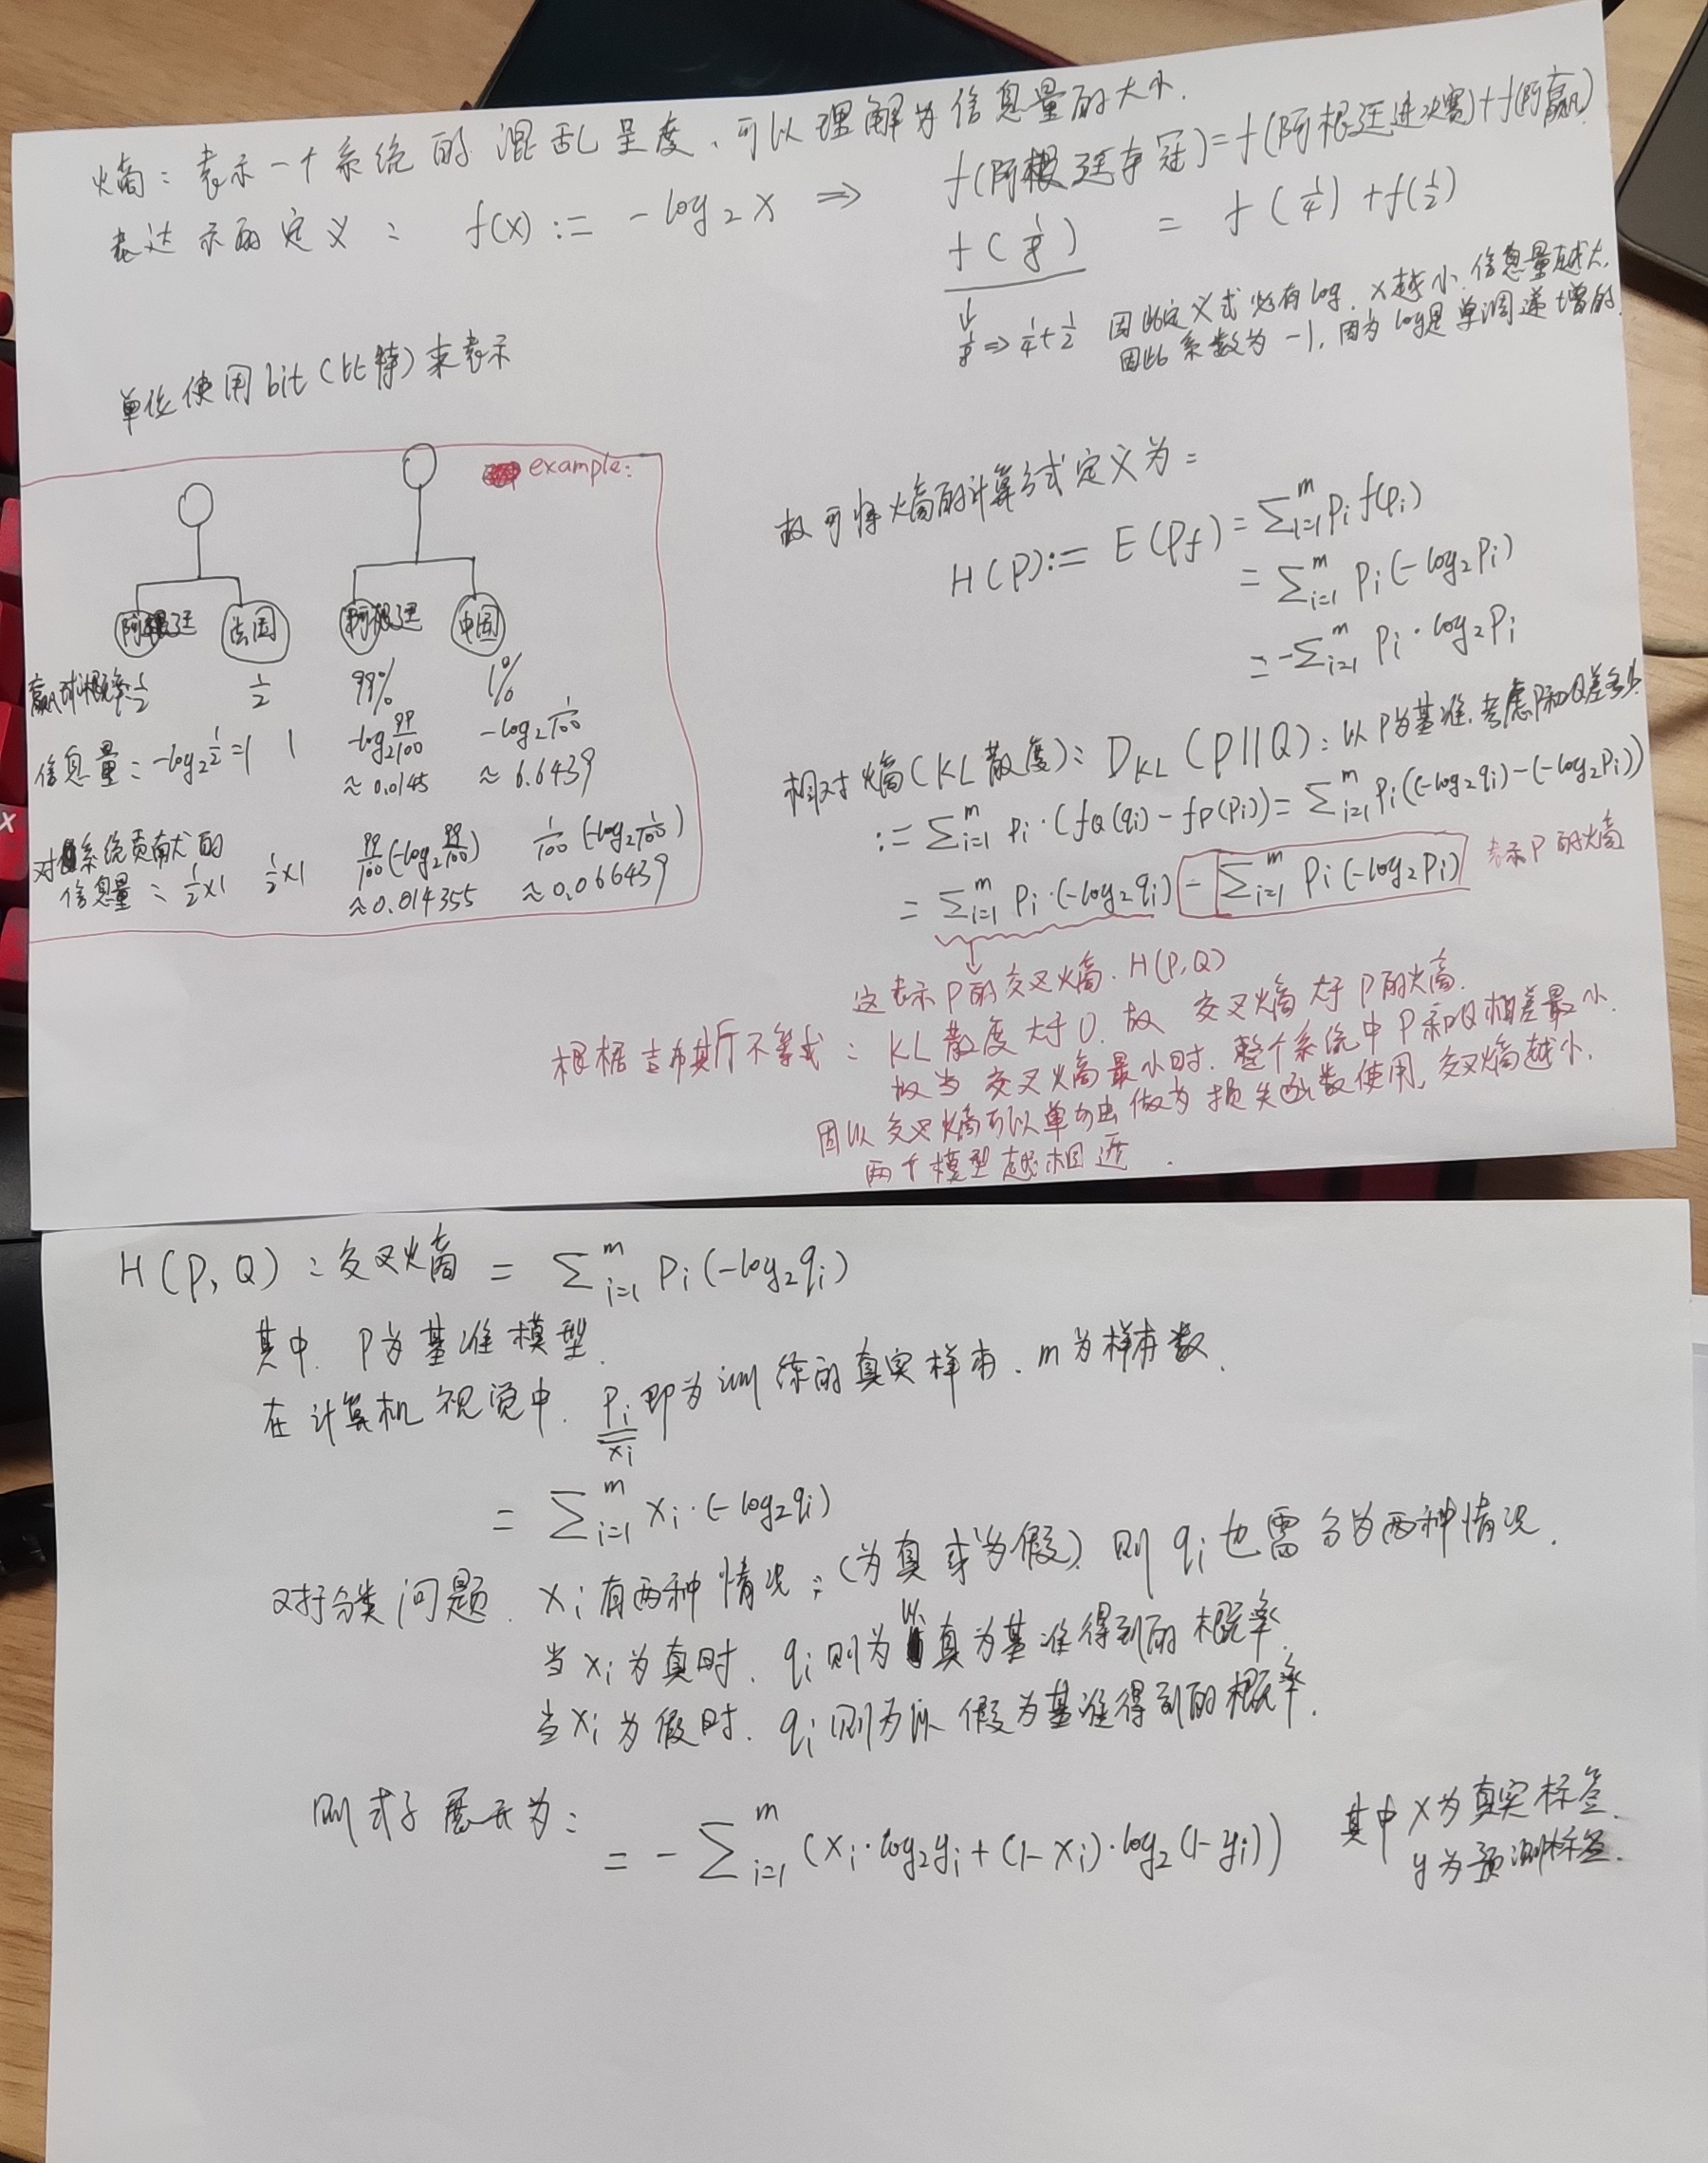 熵：表示一个系统的混乱呈度，可以理解为信息量的大小．
表达示的定义： f(x) := -log₂x ⇒ f(阿根廷夺冠)=f(阿根廷进决赛)+f(阿赢)
f(1/8) = f(1/4)+f(1/2)
1/8 ⇒ 1/4+1/2 因此定义式必有log．x越小．信息量越大．
因此系数为-1．因为log是单调递增的．
单位使用bit（比特）来表示
example:
阿根廷 法国 阿根廷 中国
赢球概率：1/2 1/2 99% 1%
信息量：-log₂1/2=1 1 -log₂99/100 -log₂1/100
≈0.0145 ≈6.6439
对系统贡献的
信息量：1/2×1 1/2×1 99/100(-log₂99/100) 1/100(-log₂1/100)
≈0.014355 ≈0.066439
故可将熵的计算方式定义为：
H(P):= E(Pf) = ∑ᵢ₌₁ᵐ pᵢf(pᵢ)
= ∑ᵢ₌₁ᵐ pᵢ(-log₂pᵢ)
= -∑ᵢ₌₁ᵐ pᵢ·log₂pᵢ
相对熵（KL散度）：D_KL(P||Q)：以P为基准．考虑P和Q差多少
:= ∑ᵢ₌₁ᵐ pᵢ·(f_Q(qᵢ)-f_P(pᵢ)) = ∑ᵢ₌₁ᵐ pᵢ((-log₂qᵢ)-(-log₂pᵢ))
= ∑ᵢ₌₁ᵐ pᵢ·(-log₂qᵢ) - ∑ᵢ₌₁ᵐ pᵢ(-log₂pᵢ) 表示P的熵
这表示P的交叉熵．H(P,Q)
根据吉布斯不等式：KL散度大于0．故 交叉熵大于P的熵．
故当交叉熵最小时．整个系统中P和Q相差最小．
因以交叉熵可以单独做为损失函数使用，交叉熵越小．
两个模型越相近．
H(P,Q)：交叉熵 = ∑ᵢ₌₁ᵐ pᵢ(-log₂qᵢ)
其中．P为基准模型．
在计算机视觉中．pᵢ即为训练的真实样本．m为样本数．
xᵢ
= ∑ᵢ₌₁ᵐ xᵢ·(-log₂qᵢ)
对于分类问题．xᵢ有两种情况：（为真或为假）则qᵢ也需分为两种情况．
当xᵢ为真时．qᵢ则为以真为基准得到的概率．
当xᵢ为假时．qᵢ则为以假为基准得到的概率．
则式子展开为：
= -∑ᵢ₌₁ᵐ (xᵢ·log₂yᵢ+(1-xᵢ)·log₂(1-yᵢ)) 其中x为真实标签．
y为预测标签．